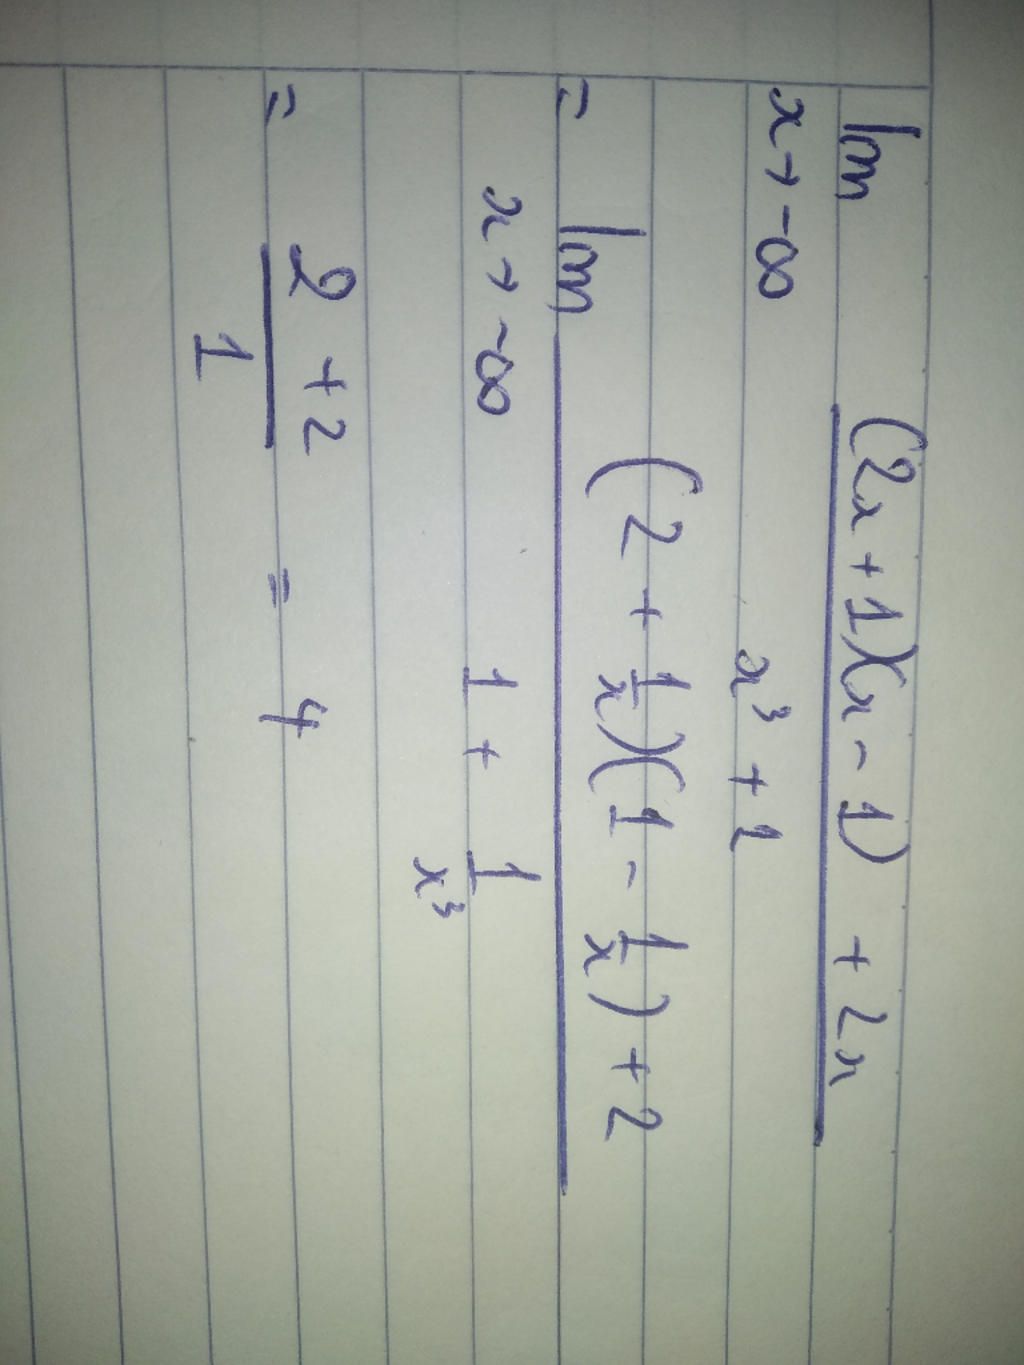 lim x → -∞ (2x + 1)(x - 1) + 2x / x³ + 1
= lim x → -∞ (2 + 1/x)(1 - 1/x) + 2 / 1 + 1/x³
= 2 + 2 / 1 = 4